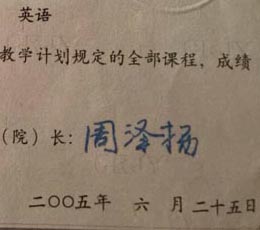 英语
教学计划规定的全部课程，成绩
（院）长：周泽扬
二〇〇五年 六 月二十五日